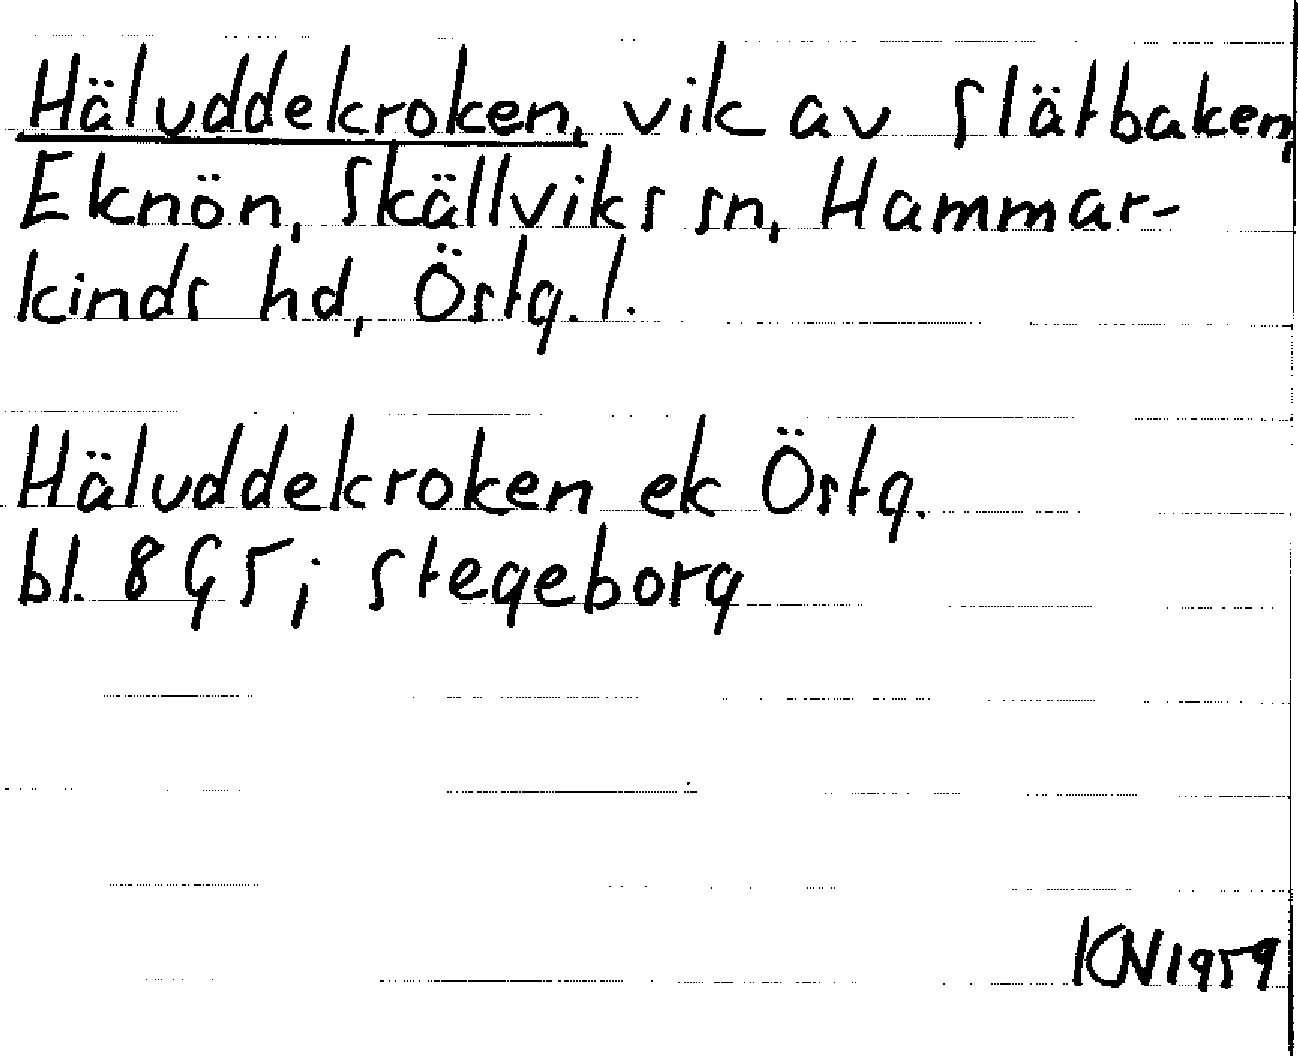 Häluddekroken, vik av Slätbaken,
Eknön, Skällviks sn, Hammar-
kinds hd, Östg. l.
Häluddekroken ek Östg.
bl. 8G5; Stegeborg
KN 1959